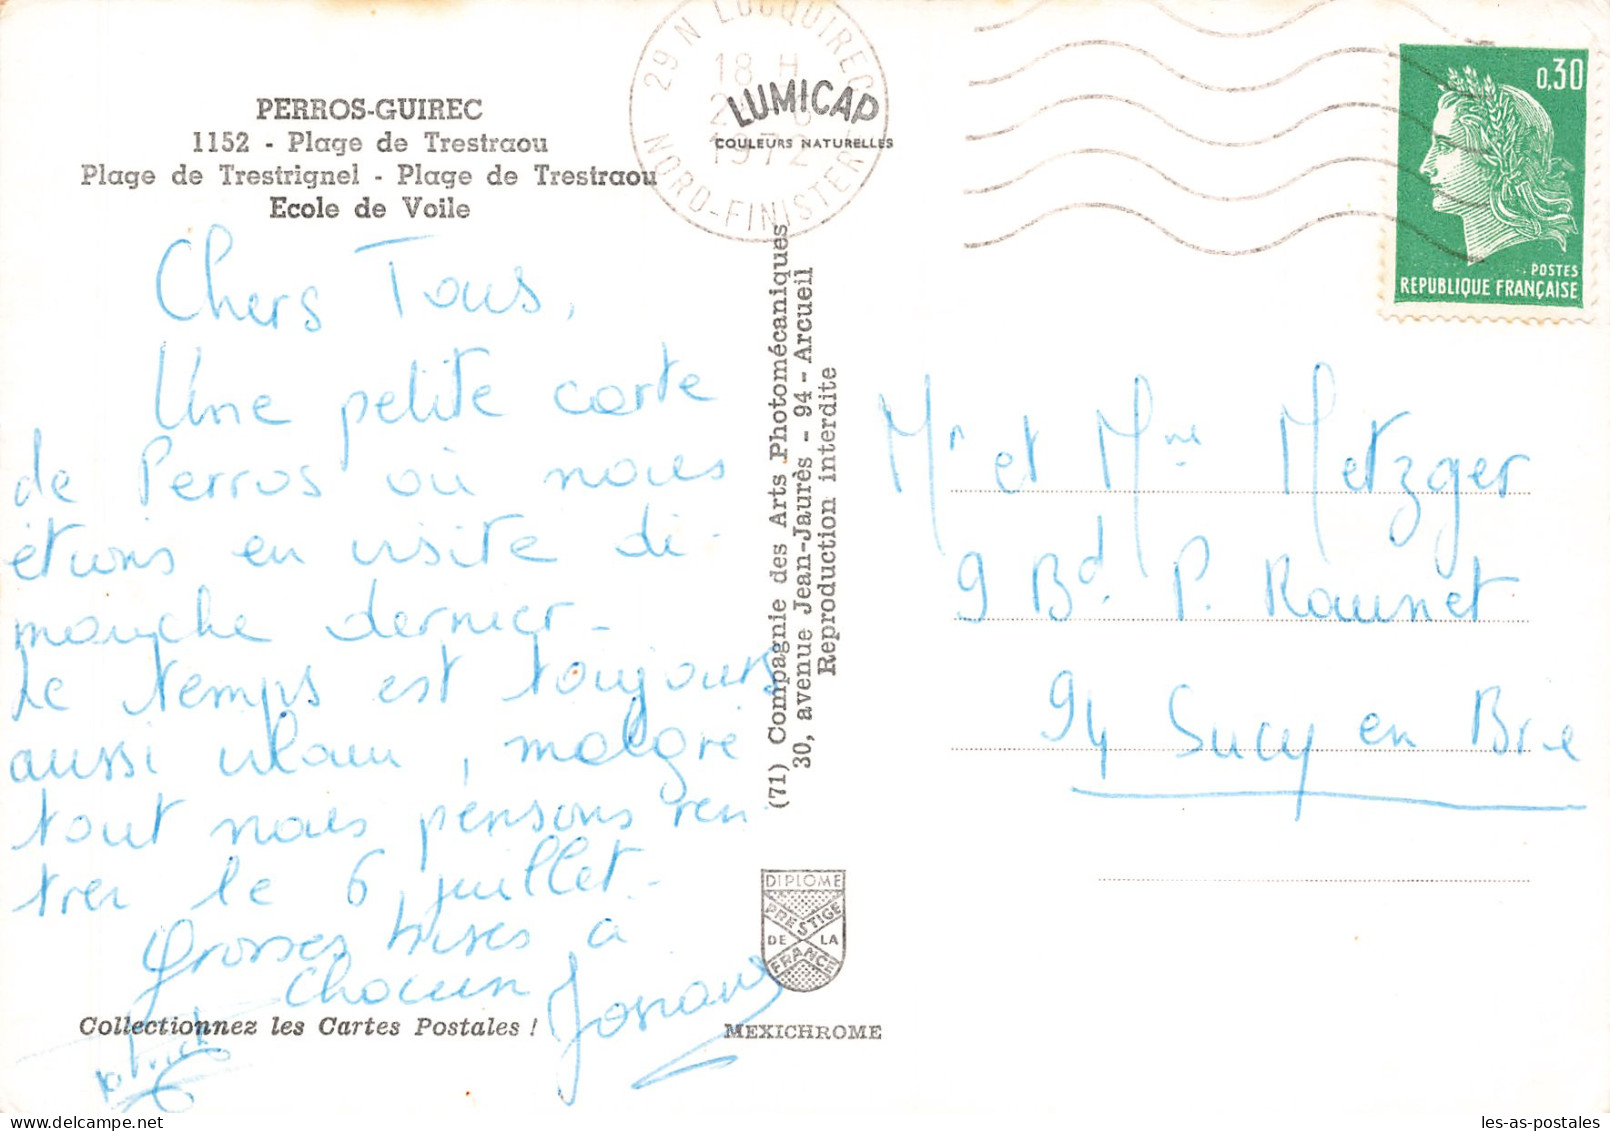 PERROS-GUIREC
1152 - Plage de Trestraou
Plage de Trestrignel - Plage de Trestraou
Ecole de Voile
Chers Tous,
Une petite carte
de Perros où nous
étions en visite di-
manche dernier-
Le temps est toujours
aussi vilain, malgré
tout nous pensons ren
trer le 6 juillet-
Grosses bises à
chacun
Collectionnez les Cartes Postales !
29 N LOCQUIREC
18 H
1972
NORD-FINISTERE
LUMICAP
COULEURS NATURELLES
(71) Compagnie des Arts Photomécaniques
30, avenue Jean-Jaurès - 94 - Arcueil
Reproduction interdite
DIPLOME
PRESTIGE
DE LA
FRANCE
MEXICHROME
0,30
POSTES
REPUBLIQUE FRANÇAISE
Mr et Mme Metzger
9 Bd. P. Raunet
94 Sucy en Brie
les-as-postales